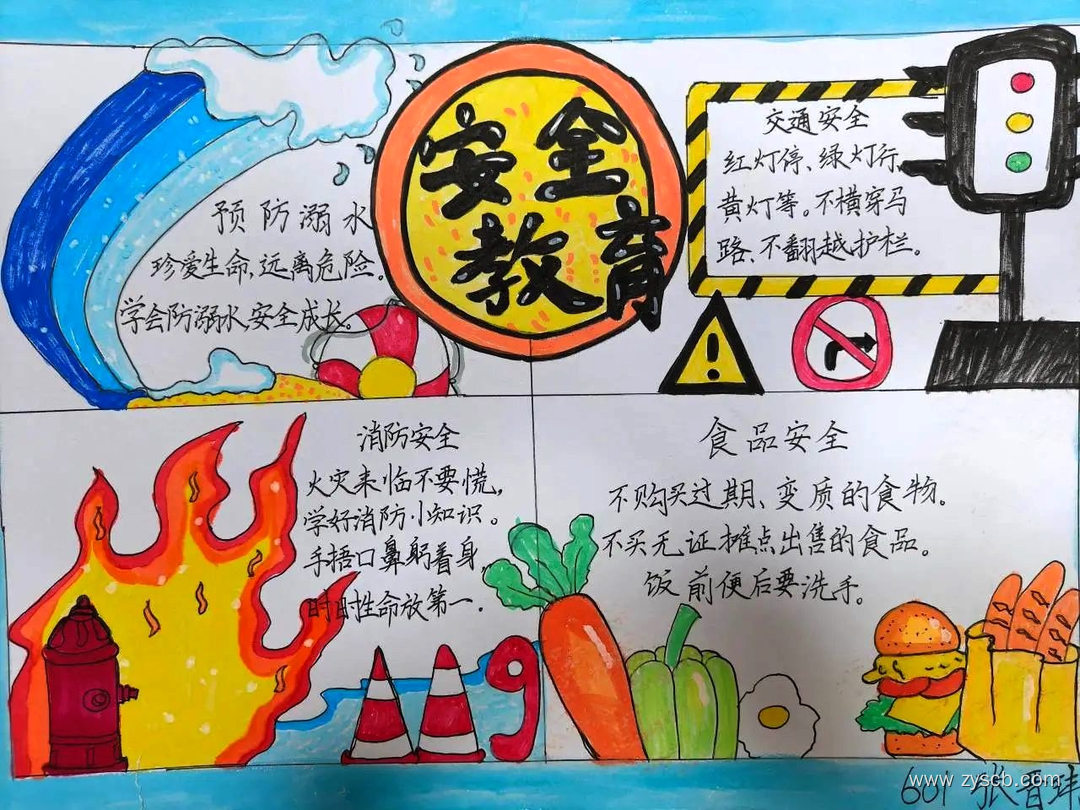 安全
教育
预防溺水
珍爱生命,远离危险。
学会防溺水安全成长。
交通安全
红灯停、绿灯行、
黄灯等。不横穿马
路、不翻越护栏。
消防安全
火灾来临不要慌,
学好消防小知识。
手捂口鼻躬着身,
时时性命放第一.
食品安全
不购买过期、变质的食物。
不买无证摊点出售的食品。
饭前便后要洗手。
119
601 张晋
www.zyscb.com